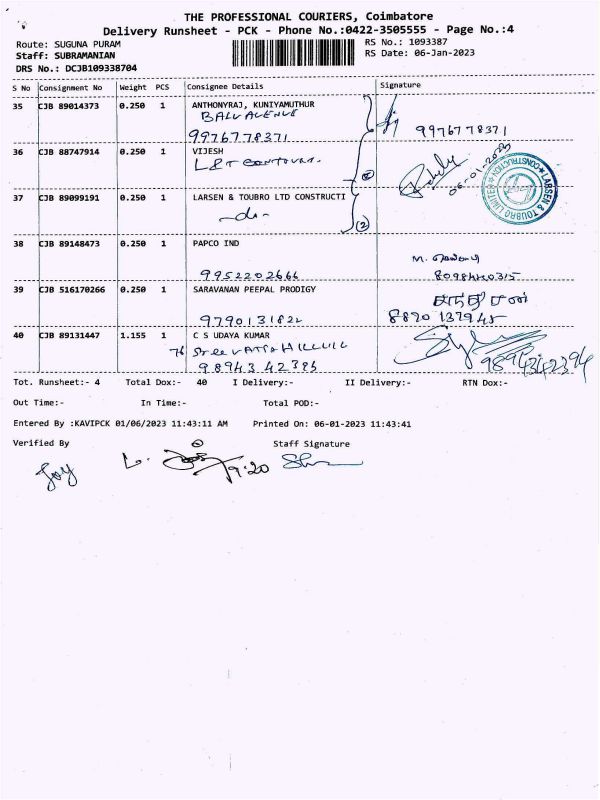 THE PROFESSIONAL COURIERS, Coimbatore
Delivery Runsheet - PCK - Phone No.:0422-3505555 - Page No.:4
Route: SUGUNA PURAM
RS No.: 1093387
Staff: SUBRAMANIAN
RS Date: 06-Jan-2023
DRS No.: DCJB109338704
S No Consignment No Weight PCS Consignee Details Signature
35 CJB 89014373 0.250 1 ANTHONYRAJ, KUNIYAMUTHUR
9976778371 9976778371
36 CJB 88747914 0.250 1 VIJESH
L&T
06-01-2023
LARSEN & TOUBRO LIMITED CONSTRUCTION
37 CJB 89099191 0.250 1 LARSEN & TOUBRO LTD CONSTRUCTI
-do- (2)
38 CJB 89148473 0.250 1 PAPCO IND
9952202666
39 CJB 516170266 0.250 1 SARAVANAN PEEPAL PRODIGY
9790131822 8820137945
40 CJB 89131447 1.155 1 C S UDAYA KUMAR
98943 42385 9894342394
Tot. Runsheet:- 4 Total Dox:- 40 I Delivery:- II Delivery:- RTN Dox:-
Out Time:- In Time:- Total POD:-
Entered By :KAVIPCK 01/06/2023 11:43:11 AM Printed On: 06-01-2023 11:43:41
Verified By Staff Signature
Joy 9:20